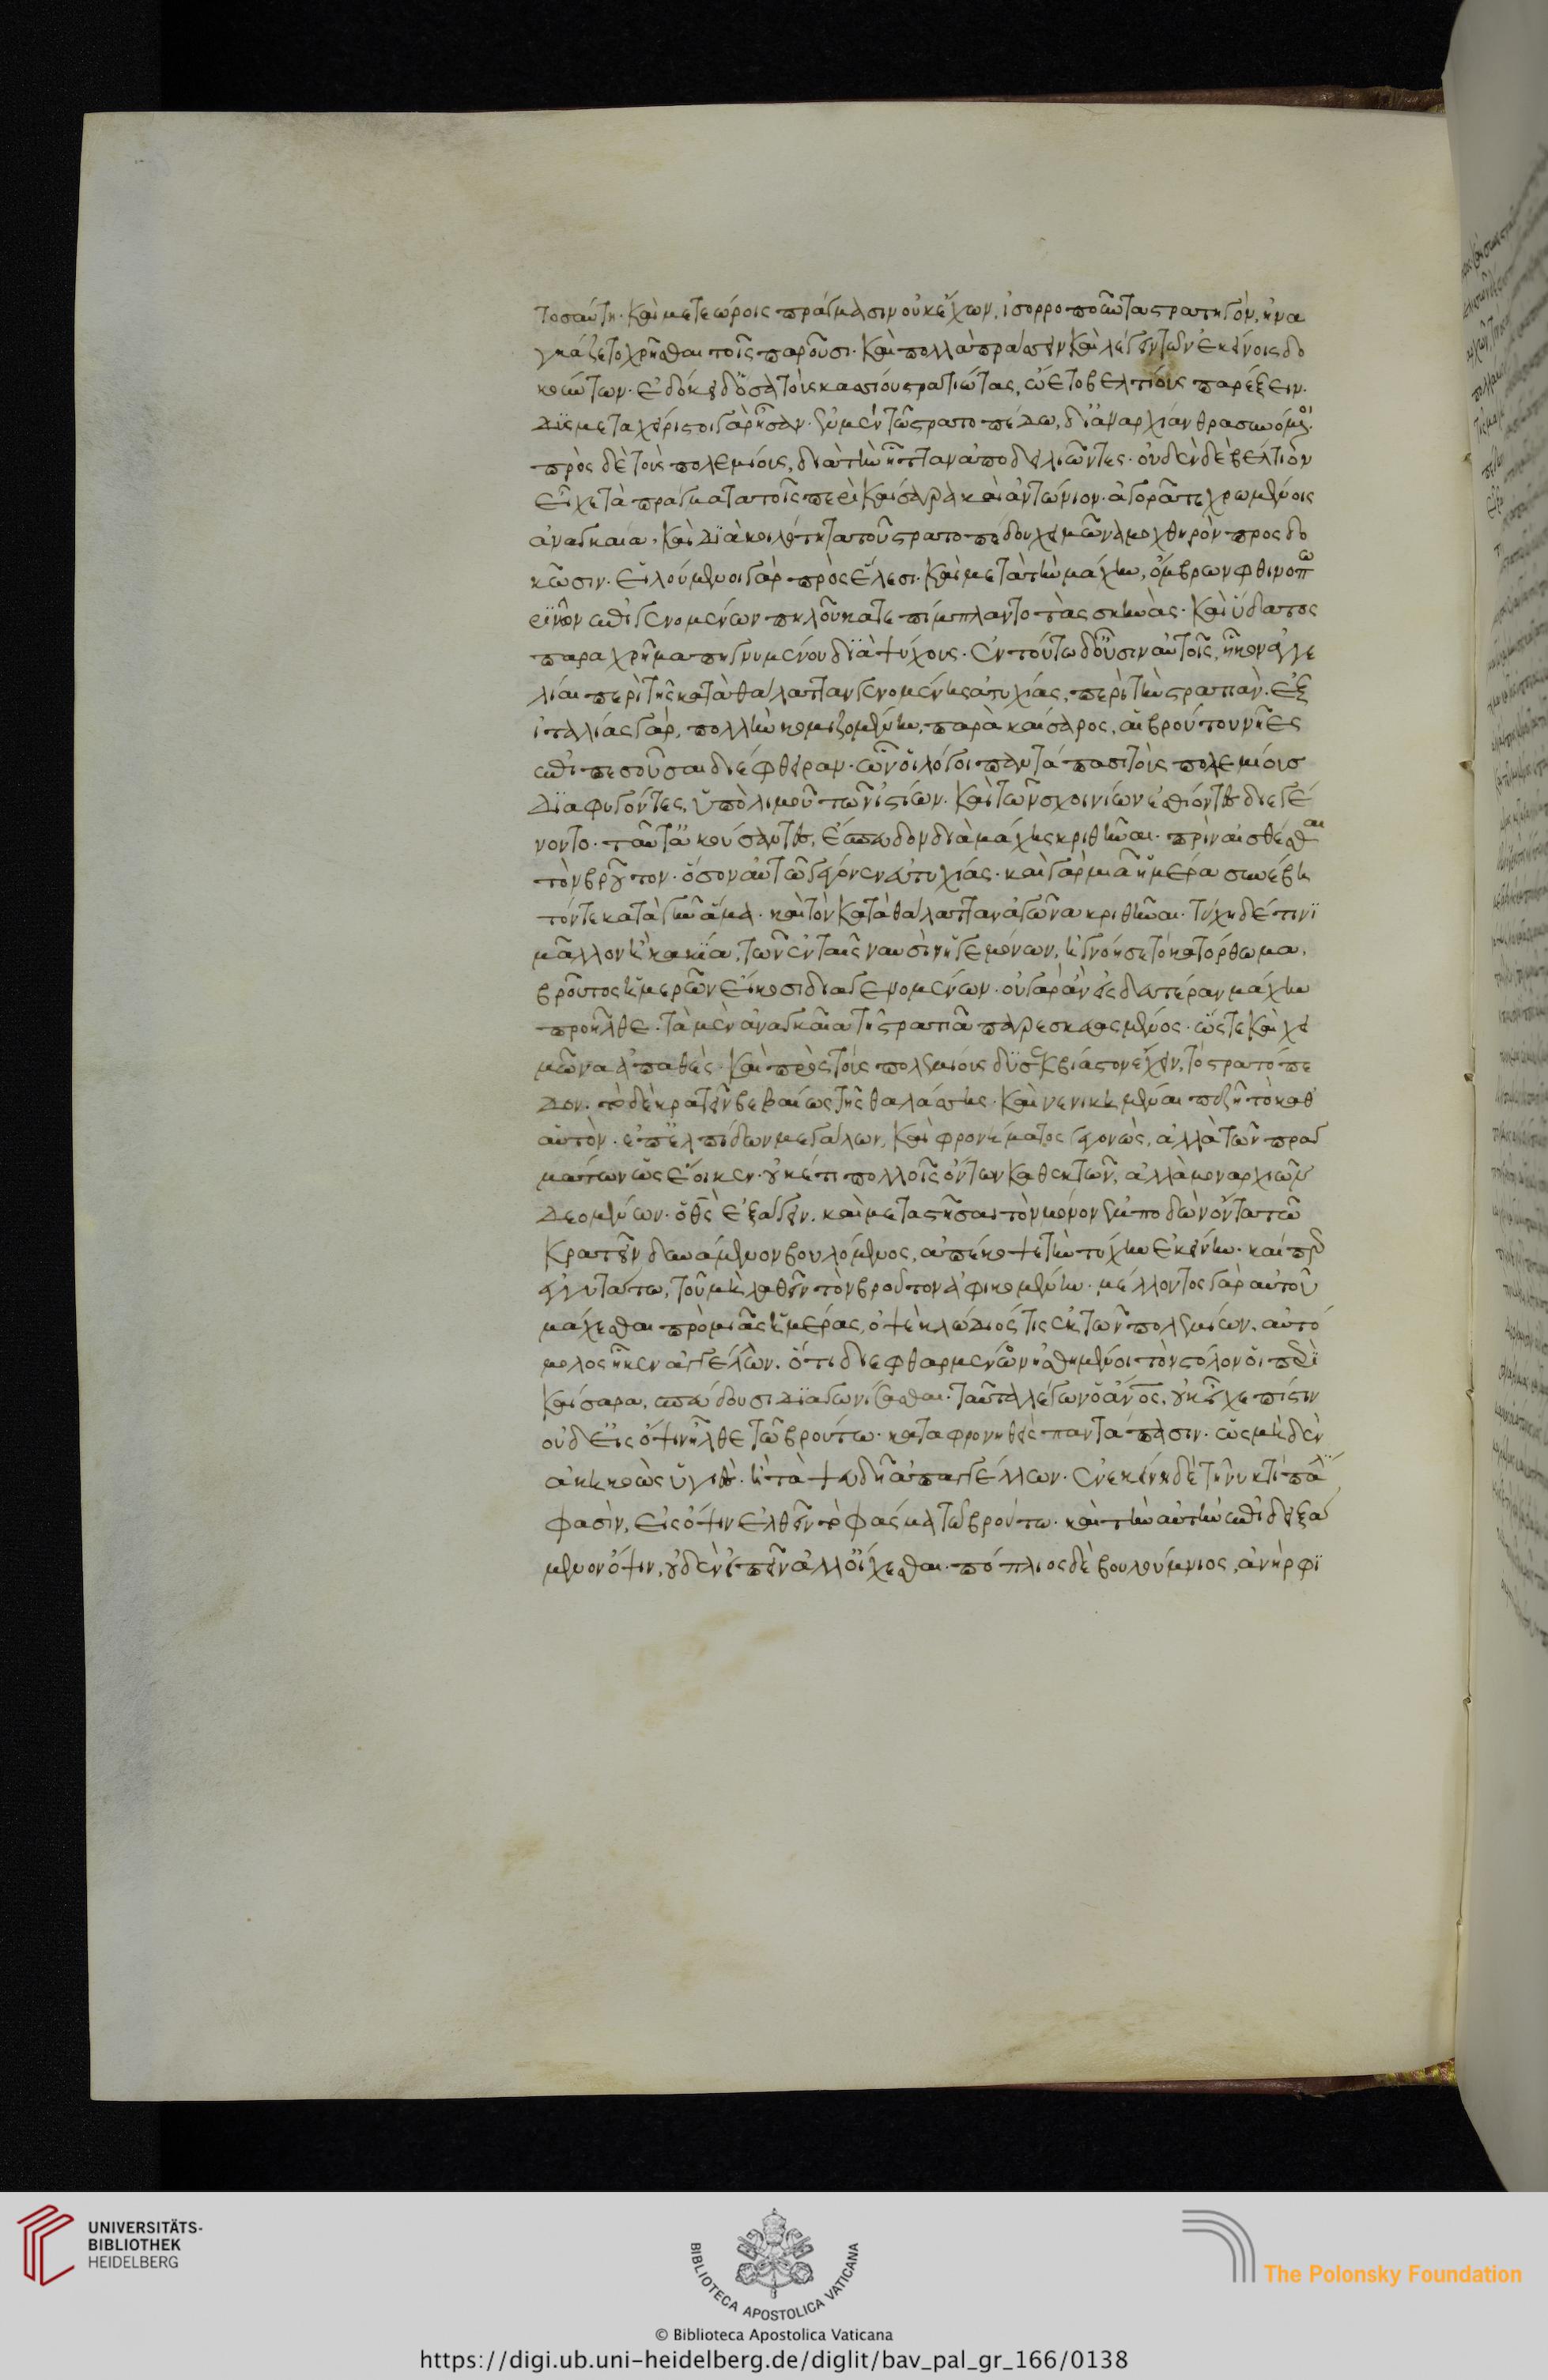 τοσαύτη· καὶ μετεώροις πράγμασιν οὐκ ἔχων, ἰσορροποῦντα στρατηγὸν, ἠνα
γκάζετο χρῆσθαι τοῖς παροῦσι· καὶ πολλὰ πράσσειν καὶ λέγειν τῶν ἐκείνοις δο
κούντων· ἐδόκει δ' ὅσα τοὺς κασσίου στρατιώτας, ᾤετο βελτίους παρέξειν·
δϊεμεταχείριστοι γὰρ ἦσαν· ἐν μὲν τῶ στρατοπέδω, δι' ἀναρχίαν θρασυνόμενοι·
πρὸς δὲ τοὺς πολεμίους, διὰ τὴν ἧτταν ἀποδειλιῶντες· οὐδὲν δὲ βέλτιον
εἶχε τὰ πράγματα τοῖς περὶ καίσαρα καὶ ἀντώνιον· ἀγορᾶ τε χρωμένοις
ἀναγκαία· καὶ διὰ κοιλότητα τοῦ στρατοπέδου χειμῶνα μοχθηρὸν προσδο
κῶσιν· εἰλούμενοι γὰρ πρὸς ἕλεσι· καὶ μετὰ τὴν μάχην, ὄμβρων φθινοπω
ρϊνῶν ἐπιγενομένων πηλοῦ κατεπίμπλαντο τὰς σκηνὰς· καὶ ὕδατος
παραχρῆμα πηγνυμένου διὰ ψύχους· ἐν τούτω δ' οὖσιν αὐτοῖς, ἧκεν ἀγγε
λία περὶ τῆς κατὰ θάλατταν γενομένης ἀτυχίας, περὶ τὴν στρατιὰν· ἐξ
ἰταλίας γὰρ, πολλὴν κομιζομένην, παρὰ καίσαρος, αἱ βρούτου νῆες
ἐπιπεσοῦσαι διέφθειραν· ὧν ὀλίγοι παντάπασι τοὺς πολεμίους
διαφυγόντες, ὑπὸ λιμοῦ τῶν ἱστίων· καὶ τῶν σχοινίων ἐσθίοντες διεγέ
νοντο· ταῦτ' ἀκούσαντες, ἔσπευδον διὰ μάχης κριθῆναι· πρὶν αἰσθέσθαι
τὸν βροῦτον· ὅσον αὐτῶ γέγονεν εὐτυχίας· καὶ γὰρ μιᾶ ἡμέρα συνέβη
τόν τε κατὰ γῆν ἅμα· καὶ τὸν κατὰ θάλατταν ἀγῶνα κριθῆναι· τύχη δέ τινϊ
μᾶλλον ἢ κακία, τῶν ἐν ταῖς ναυσὶν ἡγεμόνων, ἠγνόησε τὸ κατόρθωμα,
βροῦτος ἡμερῶν εἴκοσι διαγενομένων· οὐ γὰρ ἂν εἰς δευτέραν μάχην
προῆλθε· τὰ μὲν ἀναγκαῖα τῆ στρατιᾶ παρεσκευασμένος· ὥστε καὶ χει
μῶνα ἀπαθὲς· καὶ πρὸς τοὺς πολεμίους δυσεκβίαστον ἔχειν, τὸ στρατόπε
δον· τὸ δὲ κρατεῖν βεβαίως τῆς θαλάσσης· καὶ νενικηκέναι πεζῆ τὸ καθ'
αὑτὸν· ἐπ' ἐλπίδων μεγάλων, καὶ φρονήματος γεγονὼς, ἀλλὰ τῶν πραγ
μάτων ὡς ἔοικεν· οὐκέτι πολλοῖς ὄντων καθεκτῶν, ἀλλὰ μοναρχίας
δεομένων· ὁ θεὸς ἐξάγειν, καὶ μεταστῆσαι τὸν μόνον ἐμποδὼν ὄντα τῶ
κρατεῖν δυναμένω βουλόμενος, ἀπέκοψε τὴν τύχην ἐκείνην· καίπερ
ἐγγυτάτω, τοῦ μὴ λαθεῖν τὸν βροῦτον ἀφικομένην· μέλλοντος γὰρ αὐτοῦ
μάχεσθαι πρὸ μιᾶς ἡμέρας, ὀψὲ κλώδιός τις ἐκ τῶν πολεμίων, αὐτό
μολος ἧκεν ἀγγέλλων· ὅτι διεφθαρμένον ἠσθημένοι τὸν στόλον οἱ περὶ
καίσαρα, σπεύδουσι διαγωνίσασθαι· ταῦτα λέγων ὁ ἄνος, οὐκ εἶχε πίστιν
οὐδ' εἰς ὄψιν ἦλθε τῶ βρούτω· καταφρονηθεὶς παντάπασιν· ὡς μηδὲν
ἀκηκοὼς ὑγιὲς· ἢ τὰ ψευδῆ ἀπαγγέλλων· ἐν ἐκείνη δὲ τῆ νυκτὶ πάλιν
φασὶν, εἰς ὄψιν ἐλθεῖν τὸ φάσμα τῶ βρούτω· καὶ τὴν αὐτὴν ἐπιδειξά
μενον ὄψιν, οὐδὲν εἰπεῖν ἀλλ' οἴχεσθαι· πόπλιος δὲ βουλούμνιος, ἀνὴρ φϊ
UNIVERSITÄTS-
BIBLIOTHEK
HEIDELBERG
BIBLIOTECA APOSTOLICA VATICANA
The Polonsky Foundation
© Biblioteca Apostolica Vaticana
https://digi.ub.uni-heidelberg.de/diglit/bav_pal_gr_166/0138